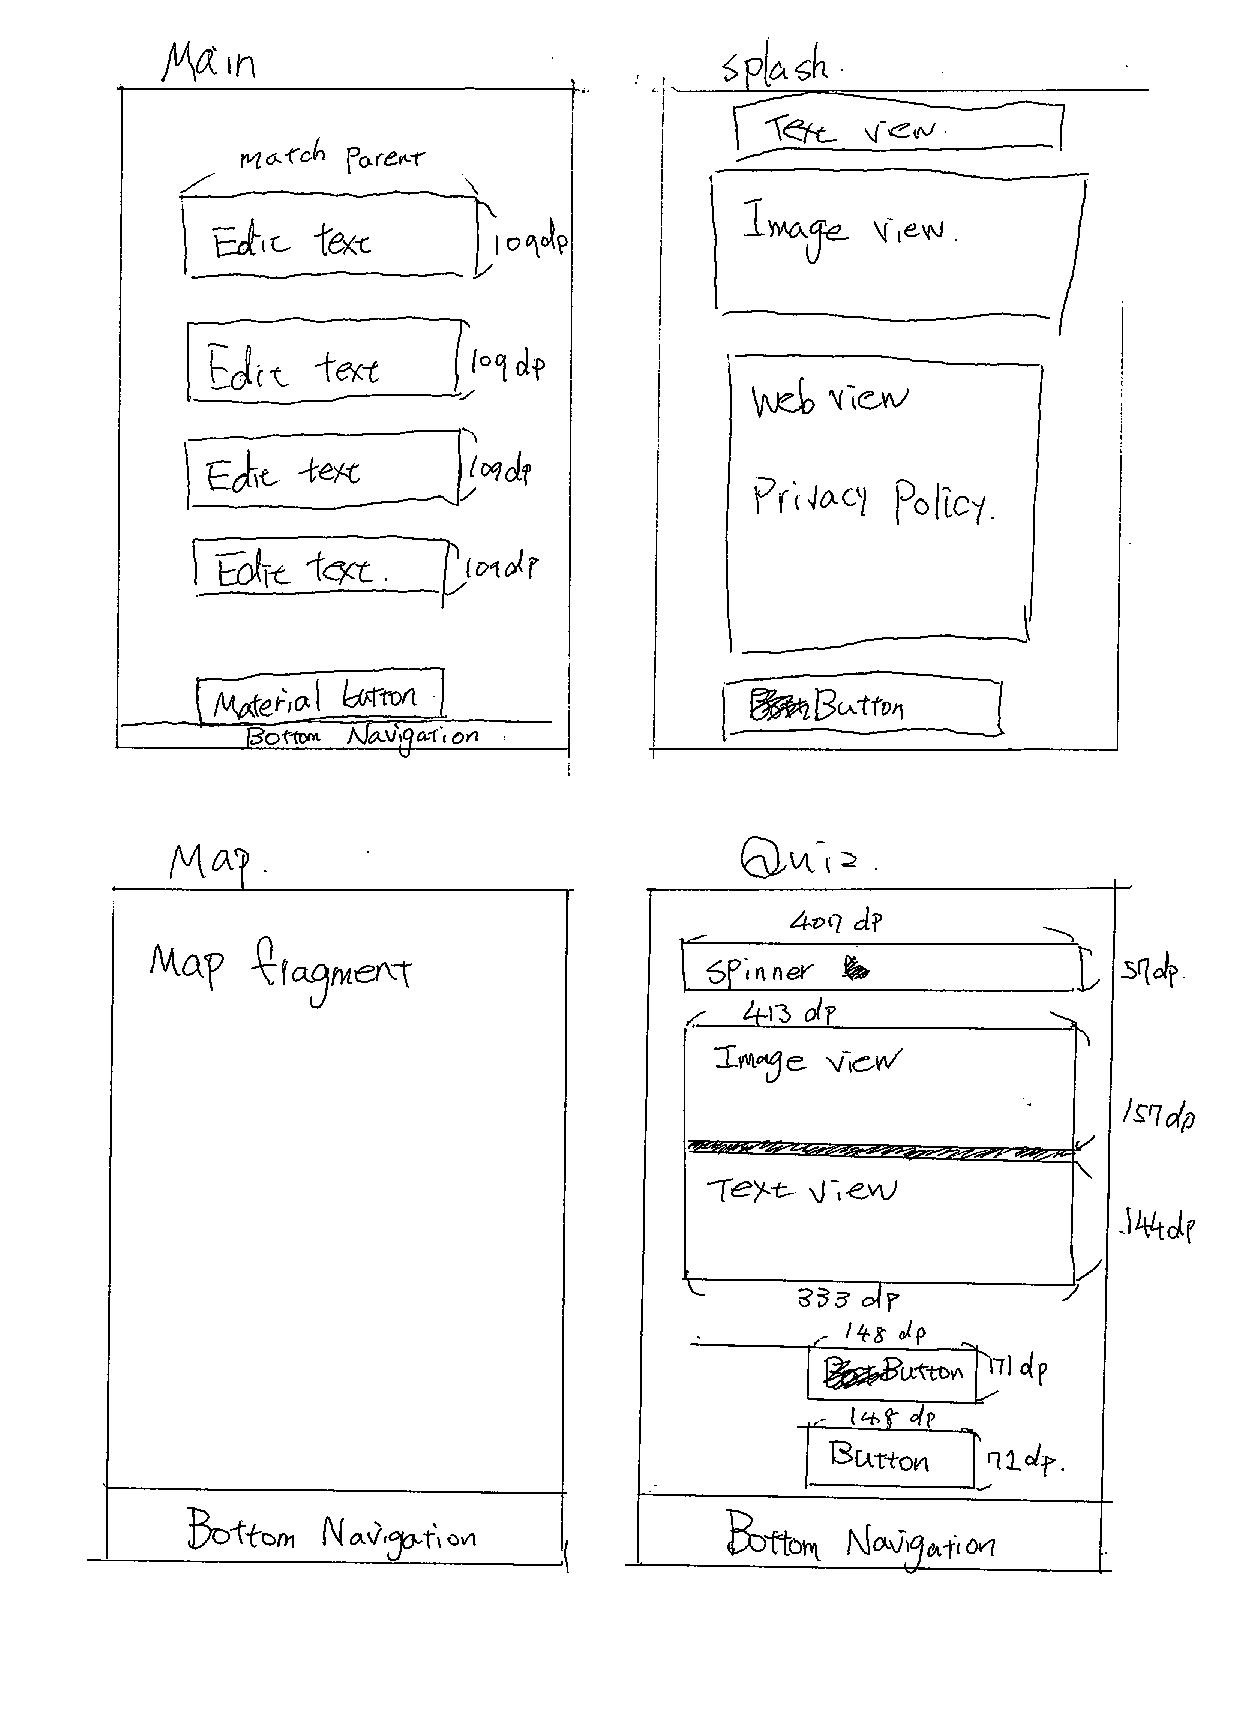 Main
match parent
Edit text
109dp
Edit text
109dp
Edit text
109dp
Edit text.
109dp
Material button
Bottom Navigation
splash.
Text view.
Image view.
Web view
Privacy Policy.
Button
Map.
Map fragment
Bottom Navigation
Quiz.
407 dp
spinner
57dp.
413 dp
Image view
157dp
Text view
144dp
333 dp
148 dp
Button
71dp
148 dp
Button
72dp.
Bottom Navigation